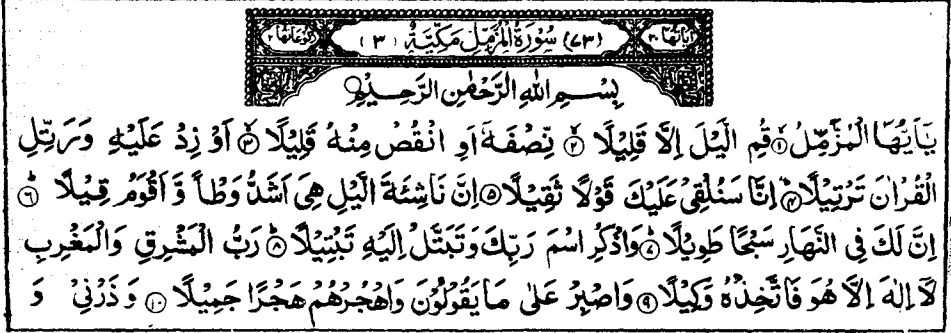 اٰيَاتُهَا ٢٠ (٧٣) سُوْرَةُ الْمُزَّمِّلِ مَكِّيَّةٌ (٣) رُكُوْعَاتُهَا ٢
بِسْمِ اللهِ الرَّحْمٰنِ الرَّحِيْمِ
يٰٓاَيُّهَا الْمُزَّمِّلُ ١ قُمِ الَّيْلَ اِلَّا قَلِيْلًا ٢ نِّصْفَهٗٓ اَوِ انْقُصْ مِنْهُ قَلِيْلًا ٣ اَوْ زِدْ عَلَيْهِ وَرَتِّلِ
الْقُرْاٰنَ تَرْتِيْلًا ٤ اِنَّا سَنُلْقِيْ عَلَيْكَ قَوْلًا ثَقِيْلًا ٥ اِنَّ نَاشِئَةَ الَّيْلِ هِيَ اَشَدُّ وَطْاً وَّاَقْوَمُ قِيْلًا ٦
اِنَّ لَكَ فِي النَّهَارِ سَبْحًا طَوِيْلًا ٧ وَاذْكُرِ اسْمَ رَبِّكَ وَتَبَتَّلْ اِلَيْهِ تَبْتِيْلًا ٨ رَبُّ الْمَشْرِقِ وَالْمَغْرِبِ
لَآ اِلٰهَ اِلَّا هُوَ فَاتَّخِذْهُ وَكِيْلًا ٩ وَاصْبِرْ عَلٰى مَا يَقُوْلُوْنَ وَاهْجُرْهُمْ هَجْرًا جَمِيْلًا ١٠ وَذَرْنِيْ وَ